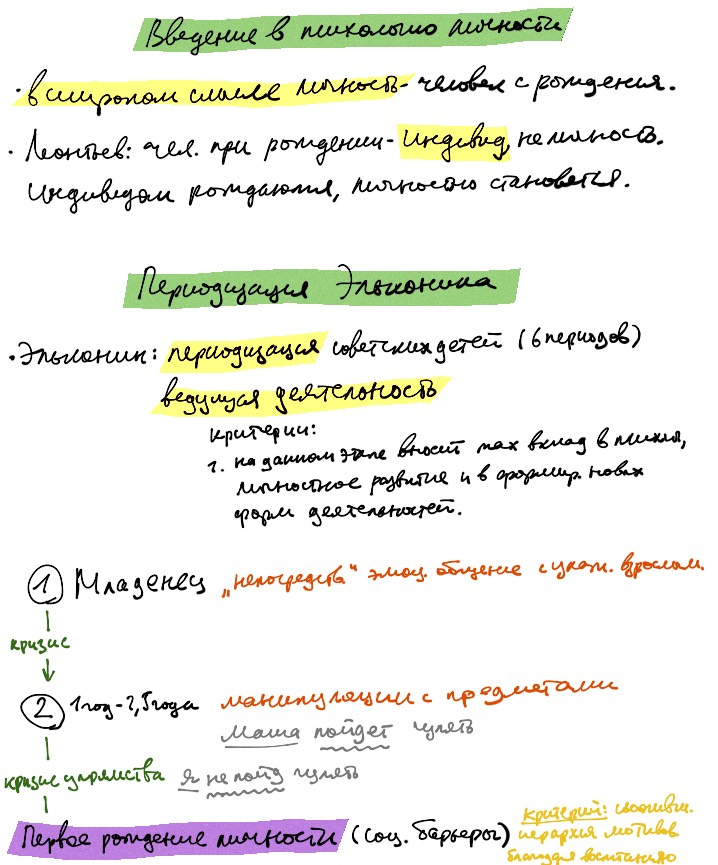 Введение в психологию личности
· в широком смысле личность - человек с рождения.
· Леонтьев: чел. при рождении - индивид, не личность.
Индивидом рождаются, личностью становятся.
Периодизация Эльконина
· Эльконин: периодизация советских детей (6 периодов)
ведущая деятельность
критерии:
1. на данном этапе вносит мах вклад в психич,
личностное развитие и в формир. новых
форм деятельностей.
1 Младенец „непосредств“ эмоц. общение с ухаж. взрослым.
кризис
2 1 год - 2,5 года манипуляции с предметами
Маша пойдет гулять
кризис упрямства Я не пойд гулять
Первое рождение личности (соц. барьеры)
Критерий:
иерархия мотивов
благодаря воспитанию